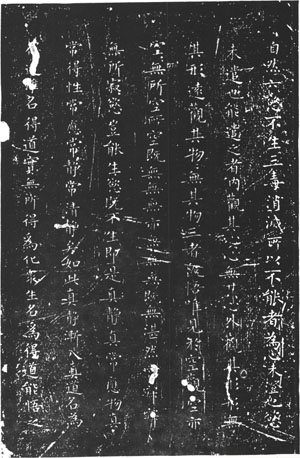 自然六欲不生三毒消滅所以不能者為心未澄也慾
未遣也能遣之者內觀其心心無其心外觀其形形無
其形遠觀其物物無其物三者既悟唯見於空觀空亦
空無所空所空既無無無亦無無無既無湛然常寂
無所寂慾豈能生慾既不生即是真静真常應物真
常得性常應常静常清静矣如此真静漸入真道名為
名得道實無所得為化衆生名為得道能悟之